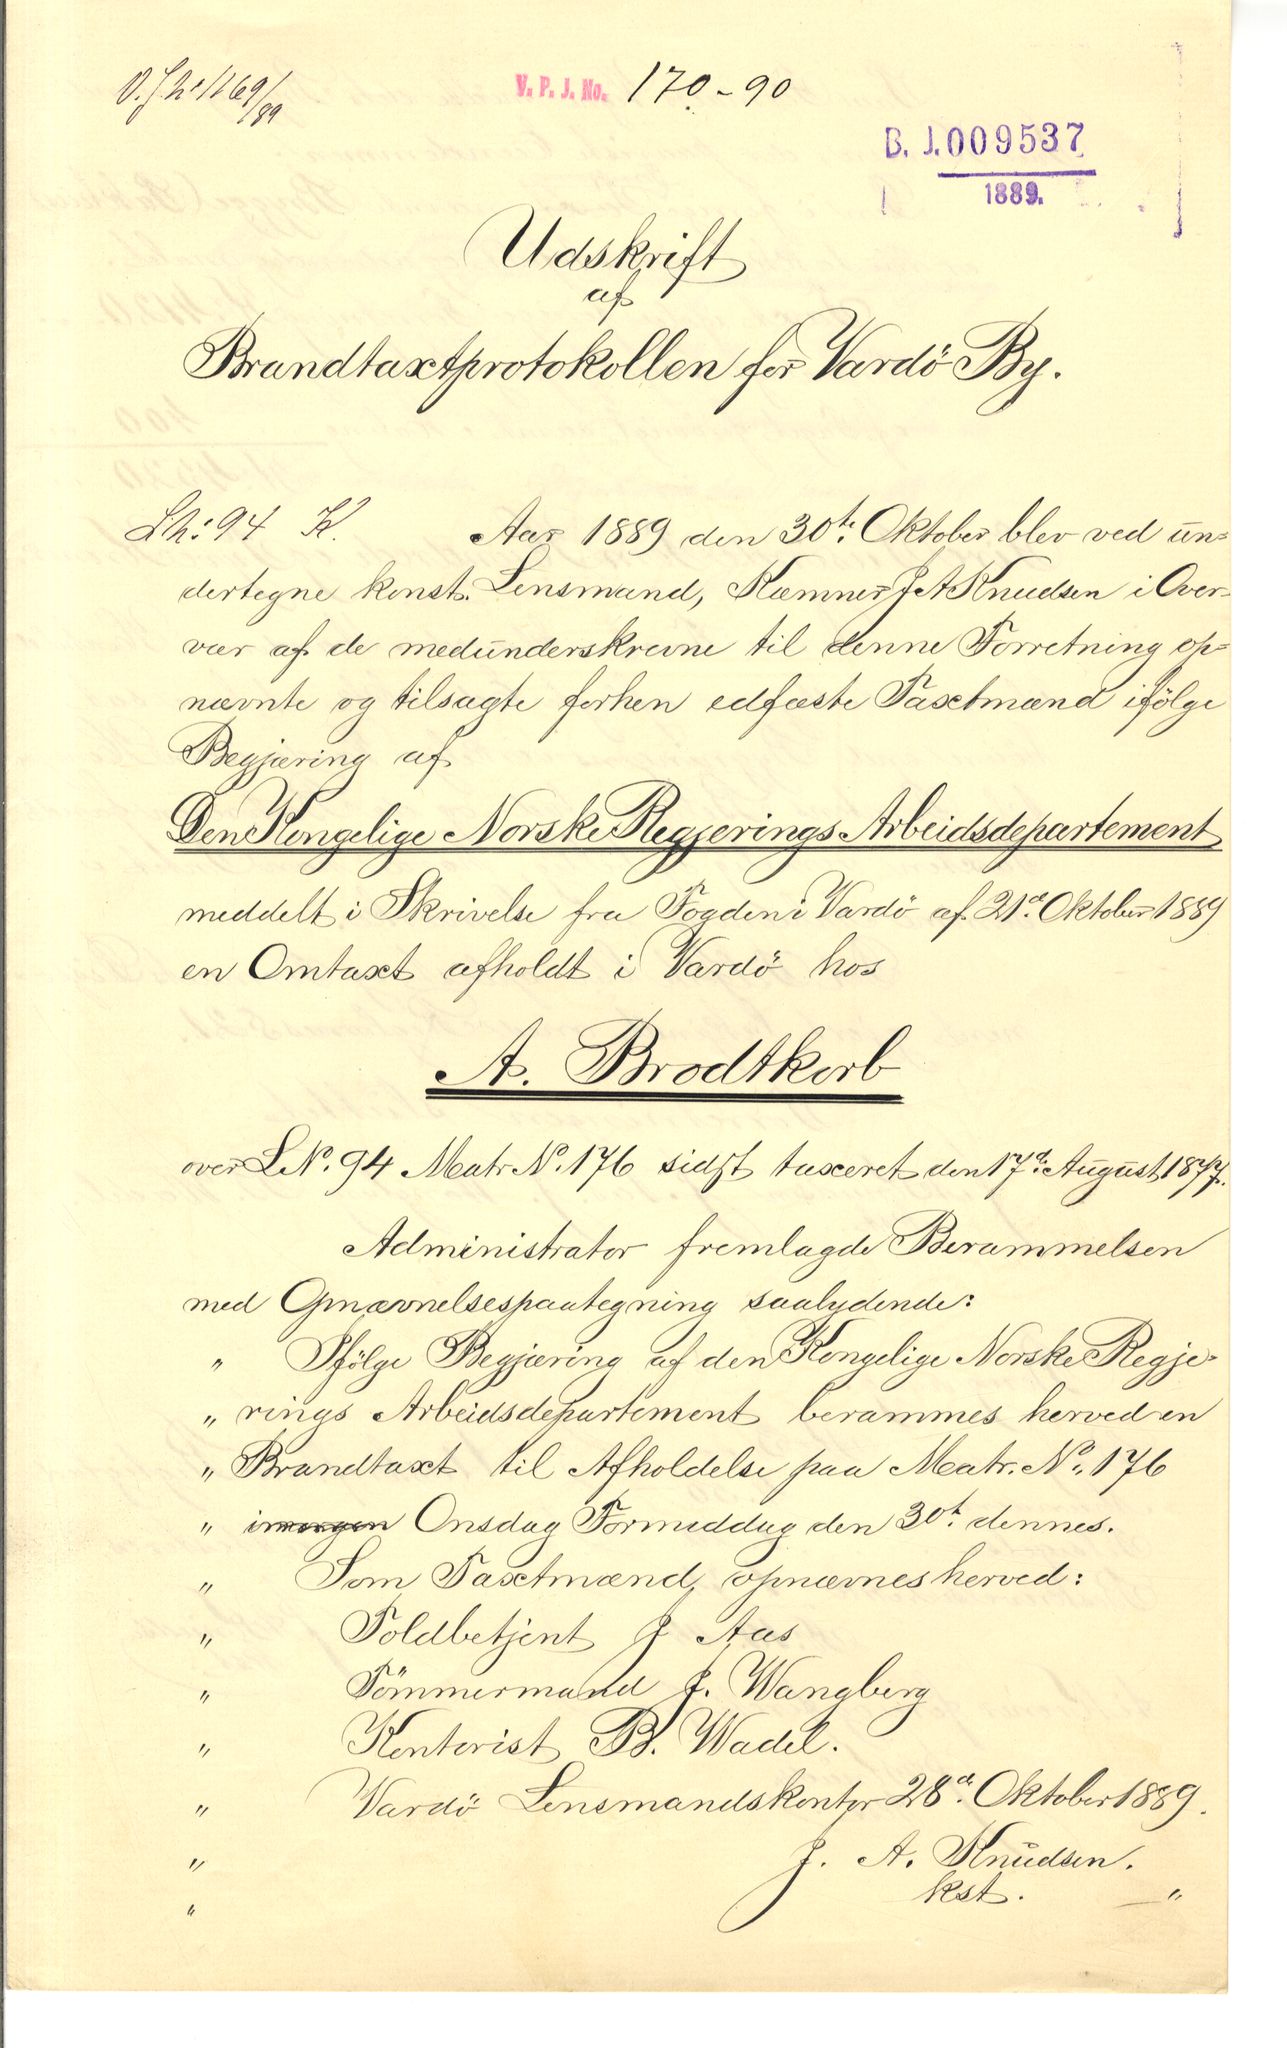 V. P. J. No. 170-90
B. J. 009537
1889.
Udskrift
af
Brandtaxtprotokollen for Vardö By.
LN: 94 K. Aar 1889 den 30te Oktober blev ved un-
dertegne konst. Lensmand, Kæmner J A Knudsen i Over-
vær af de medunderskrevne til denne Forretning op-
nævnte og tilsagte forhen edfæste Taxtmænd ifölge
Begjæring af
Den Kongelige Norske Regjerings Arbeidsdepartement
meddelt i Skrivelse fra Fogden i Vardö af 21de Oktober 1889
en Omtaxt afholdt i Vardö hos
A. Brodtkorb
over LN. 94 Matr N. 176 sidst taxeret den 17de August 1877.
Administrator fremlagde Berammelsen
med Opnævnelsespaategning saalydende:
" Ifölge Begjæring af den Kongelige Norske Regje-
" rings Arbeidsdepartement berammes herved en
" Brandtaxt til Afholdelse paa Matr. No. 176
" imorgen Onsdag Formiddag den 30te dennes.
" Som Taxtmænd opnævnes herved:
" Toldbetjent J Aas
" Tömmermand J. Wangberg
" Kontorist B. Wadel.
" Vardö Lensmandskontor 28de Oktober 1889.
" J. A. Knudsen.
" kst. "